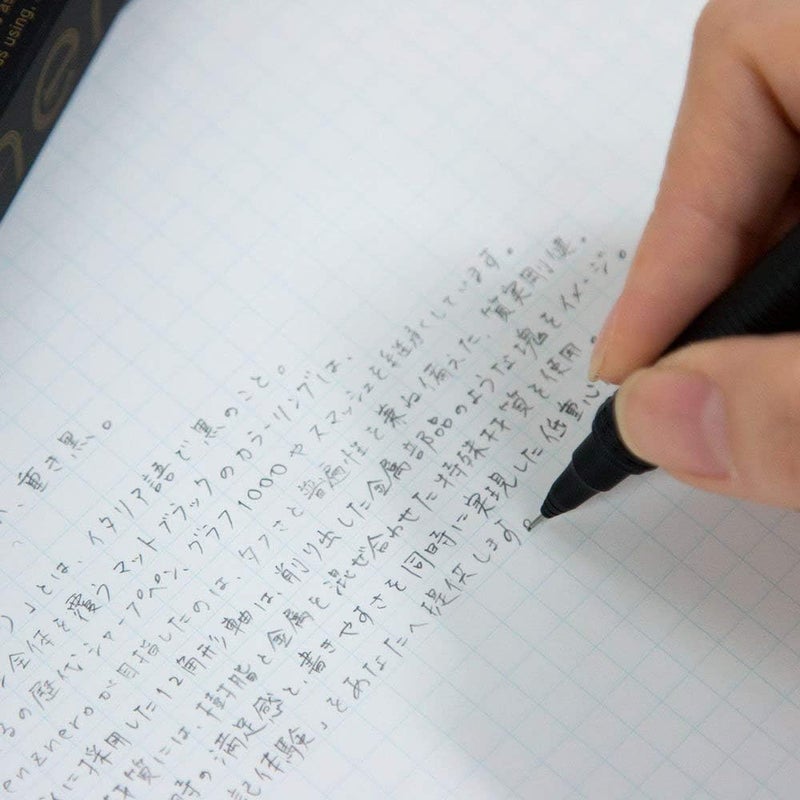 as
us using.
ner
、重き黒。
)」とは、イタリア語で黒のこと。
全体を覆うマットブラックのカラーリングは、
るの歴代シャープペン、グラフ1000やスマッシュを継承しています。
enzneroが目指したのは、タフさと普遍性を兼ね備えた、質実剛健。
に採用した12角形軸は、削り出した金属部品のような塊をイメージ。
材質には、樹脂と金属を混ぜ合わせた特殊材質を使用。
時の満足感と、書きやすさを同時に実現した低重心
記体験」をあなたへ提供します。